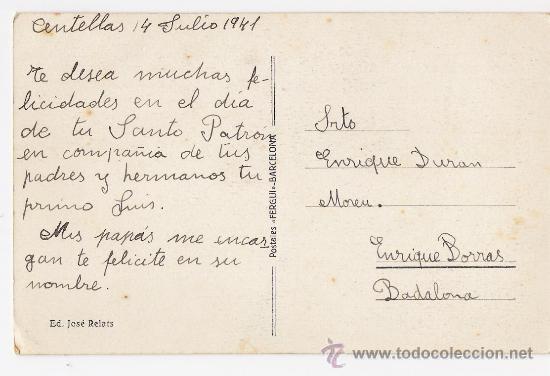 Centellas 14 Julio 1941
Te desea muchas fe-
licidades en el día
de tu Santo Patrón
en compañia de tus
padres y hermanos tu
primo Luis.
Mis papás me encar-
gan te felicite en su
nombre.
Ed. José Relats
Postales «FERGUI»-BARCELONA
Srto
Enrique Duran
Moreu.
Enrique Borras
Badalona
www.todocoleccion.net